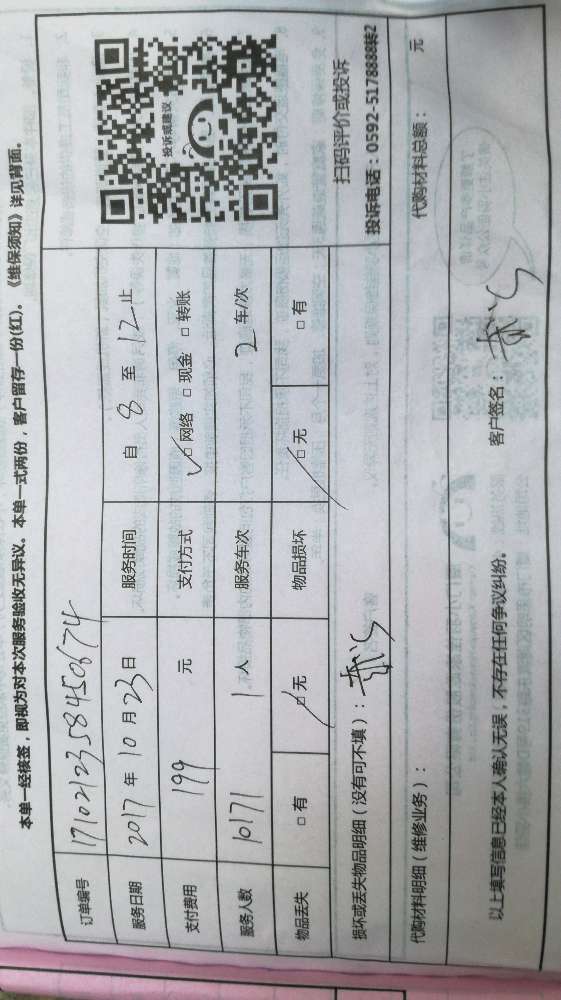 本单一经核签，即视为对本次服务验收无异议。本单一式两份，客户留存一份(红)。《维保须知》详见背面。
订单编号 1710212358450674
投诉或建议
服务日期 2017年10月23日 服务时间 自 8 至 12 止
支付费用 199 元 支付方式 ✓□网络 □现金 □转账
服务人数 10171 1人 服务车次 2车/次
物品丢失 □有 □无 物品损坏 □无 □有
扫码评价或投诉
投诉电话：0592-5178888转2
损坏或丢失物品明细（没有可不填）：
代购材料明细（维修业务）： 代购材料总额： 元
以上填写信息已经本人确认无误，不存在任何争议纠纷。 客户签名：